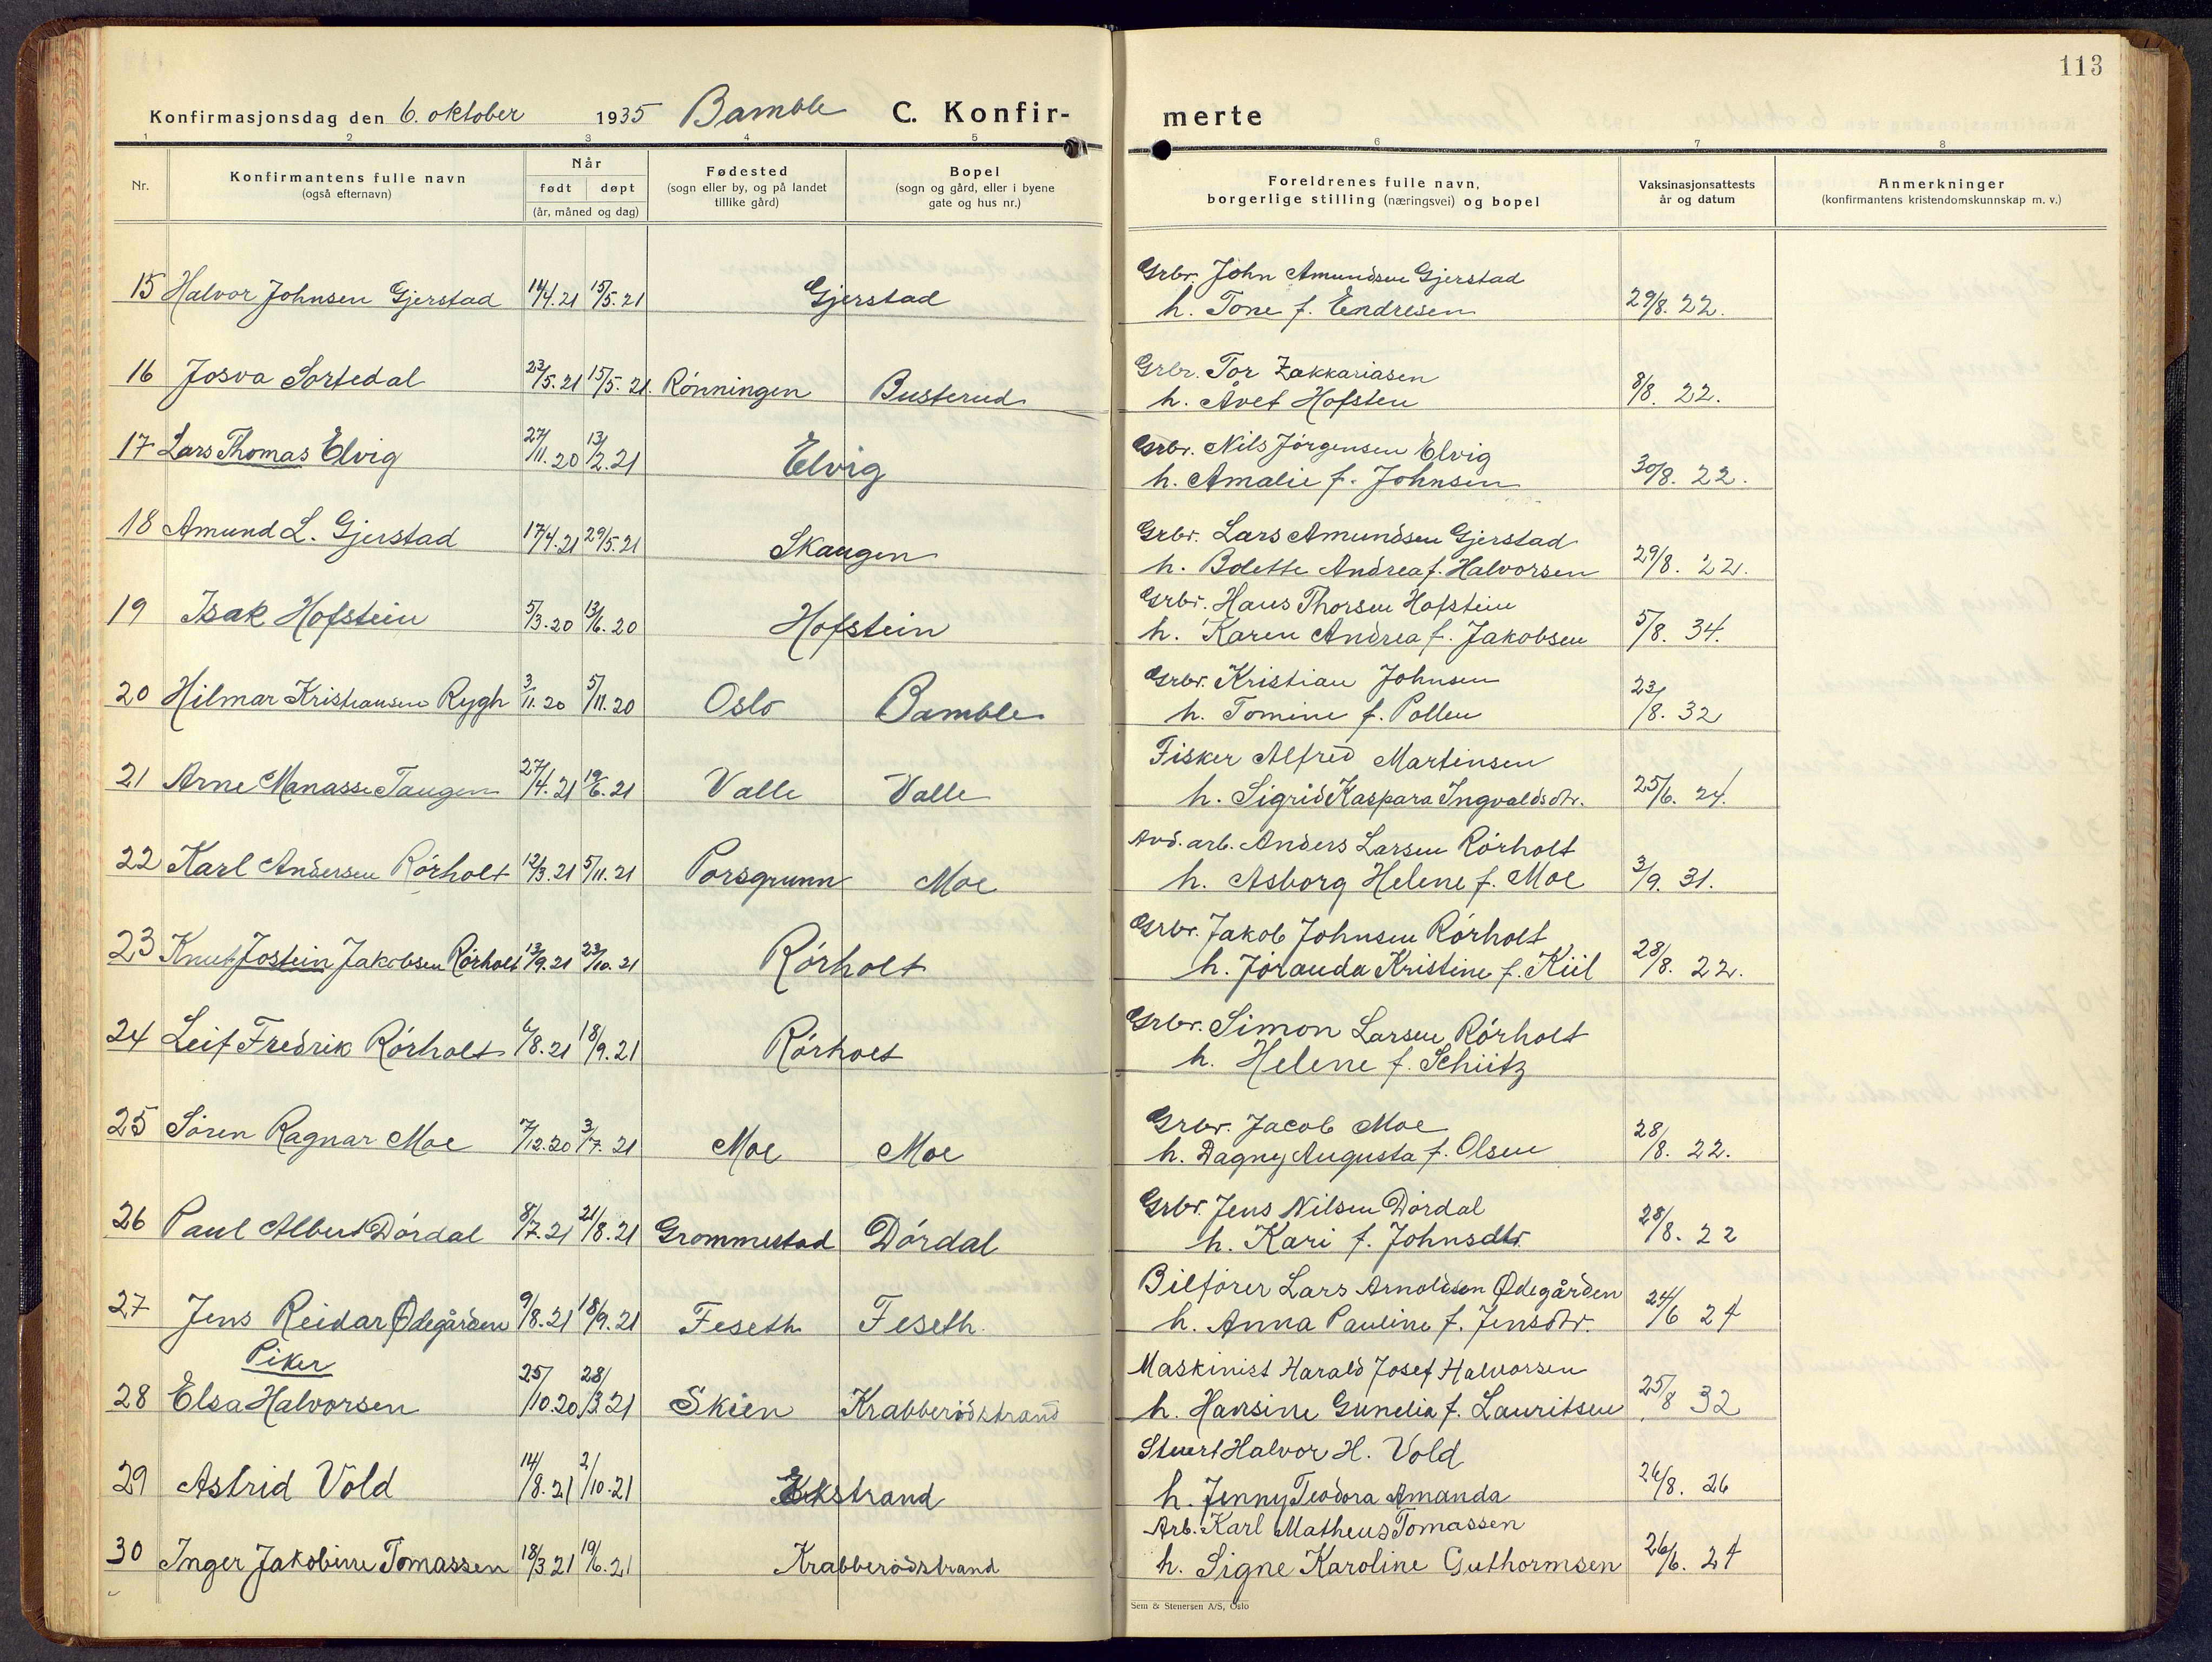 113
Konfirmasjonsdag den 6. oktober 1935 Bamble C. Konfir-merte
1 2 3 4 5 6 7 8
Nr.
Konfirmantens fulle navn
(også efternavn)
Når
født døpt
(år, måned og dag)
Fødested
(sogn eller by, og på landet
tillike gård)
Bopel
(sogn og gård, eller i byene
gate og hus nr.)
Foreldrenes fulle navn,
borgerlige stilling (næringsvei) og bopel
Vaksinasjonsattests
år og datum
Anmerkninger
(konfirmantens kristendomskunnskap m. v.)
Grbr. John Amundsen Gjerstad
15 Halvor Johnsen Gjerstad 14/4.21 15/5.21 Gjerstad h. Tone f. Endresen 29/8. 22.
Grbr. Tor Zakkariasen
16 Josva Sortedal 23/5.21 15/5.21. Rønningen Busterud h. Åvet Hofsten 8/8. 22.
Grbr. Nils Jørgensen Elvig
17 Lars Thomas Elvig 27/11.20 13/2.21 Elvig h. Amalie f. Johnsen 30/8. 22.
Grbr. Lars Amundsen Gjerstad
18 Amund L. Gjerstad 17/4.21 29/5.21 Skaugen h. Bolette Andrea f. Halvorsen 29/8. 22.
Grbr. Hans Thorsen Hofstein
19 Isak Hofstein 5/3.20 13/6.20 Hofstein h. Karen Andrea f. Jakobsen 5/8. 34.
Grbr. Kristian Johnsen
20 Hilmar Kristiansen Rygh 3/11.20 5/11.20 Oslo Bamble h. Tomine f. Pollen 23/8. 32
Fisker Alfred Martinsen
21 Arne Manasse Tangen 27/4.21 19/6.21 Valle Valle h. Sigrid Kaspara Ingvaldsdtr. 25/6. 24.
Avd. arb. Anders Larsen Rørholt
22 Karl Andersen Rørholt 12/3.21 5/11.21 Porsgrunn Moe h. Asborg Helene f. Moe 3/9. 31.
Grbr. Jakob Johnsen Rørholt
23 Knut Jostein Jakobsen Rørholt 13/9.21 23/10.21 Rørholt h. Jøranda Kristine f. Kiil 28/8. 22.
Grbr. Simon Larsen Rørholt
24 Leif Fredrik Rørholt 6/8.21 18/9.21 Rørholt h. Helene f. Schütz
Grbr. Jacob Moe
25 Søren Ragnar Moe 7/12.20 3/7.21 Moe Moe h. Dagny Augusta f. Olsen 28/8. 22.
Grbr. Jens Nilsen Dørdal
26 Paul Albert Dørdal 8/7.21 21/8.21 Grommestad Dørdal h. Kari f. Johnsdtr. 28/8. 22
Bilfører Lars Arnoldsen Ødegården
27 Jens Reidar Ødegården 9/8.21 18/9.21 Feseth Feseth. h. Anna Pauline f. Jensdtr. 24/6 24
Piker
Maskinist Harald Josef Halvorsen
28 Elsa Halvorsen 25/10.20 28/3.21 Skien Krabberødstrand h. Hansine Gunelia f. Lauritsen 25/8 32
Stuert Halvor H. Vold
29 Astrid Vold 14/8.21 2/10.21 Ekstrand h. Jenny Teodora Amanda 26/8. 26
Arb. Karl Matheus Tomassen
30 Inger Jakobine Tomassen 18/3 21 19/6.21 Krabberødstrand h. Signe Karoline Guthormsen 26/6. 24
Sem & Stenersen A/S, Oslo